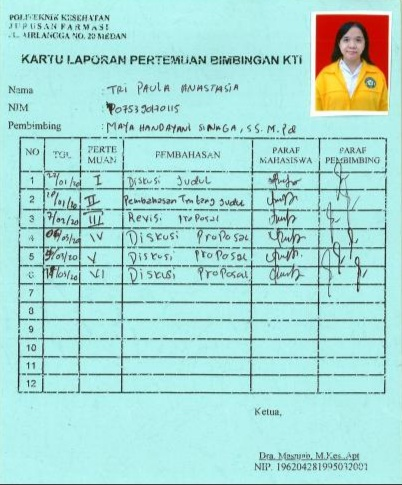 POLITEKNIK KESEHATAN
JURUSAN FARMASI
JL. AIRLANGGA NO. 20 MEDAN
KARTU LAPORAN PERTEMUAN BIMBINGAN KTI
Nama : TRI PAULA ANASTASIA
NIM : P075390170115
Pembimbing : MAYA HANDAYANI SINAGA, SS. M.Pd
NO TGL PERTEMUAN PEMBAHASAN PARAF MAHASISWA PARAF PEMBIMBING
1 /01/20 I Diskusi Judul
2 /01/20 II Pembahasan Tentang Judul
3 7/02/20 III Revisi Proposal
4 /03/20 IV Diskusi Proposal
5 /03/20 V Diskusi Proposal
6 /03/20 VI Diskusi Proposal
7
8
9
10
11
12
Ketua,
Dra. Masniah, M.Kes, Apt
NIP. 196204281995032001